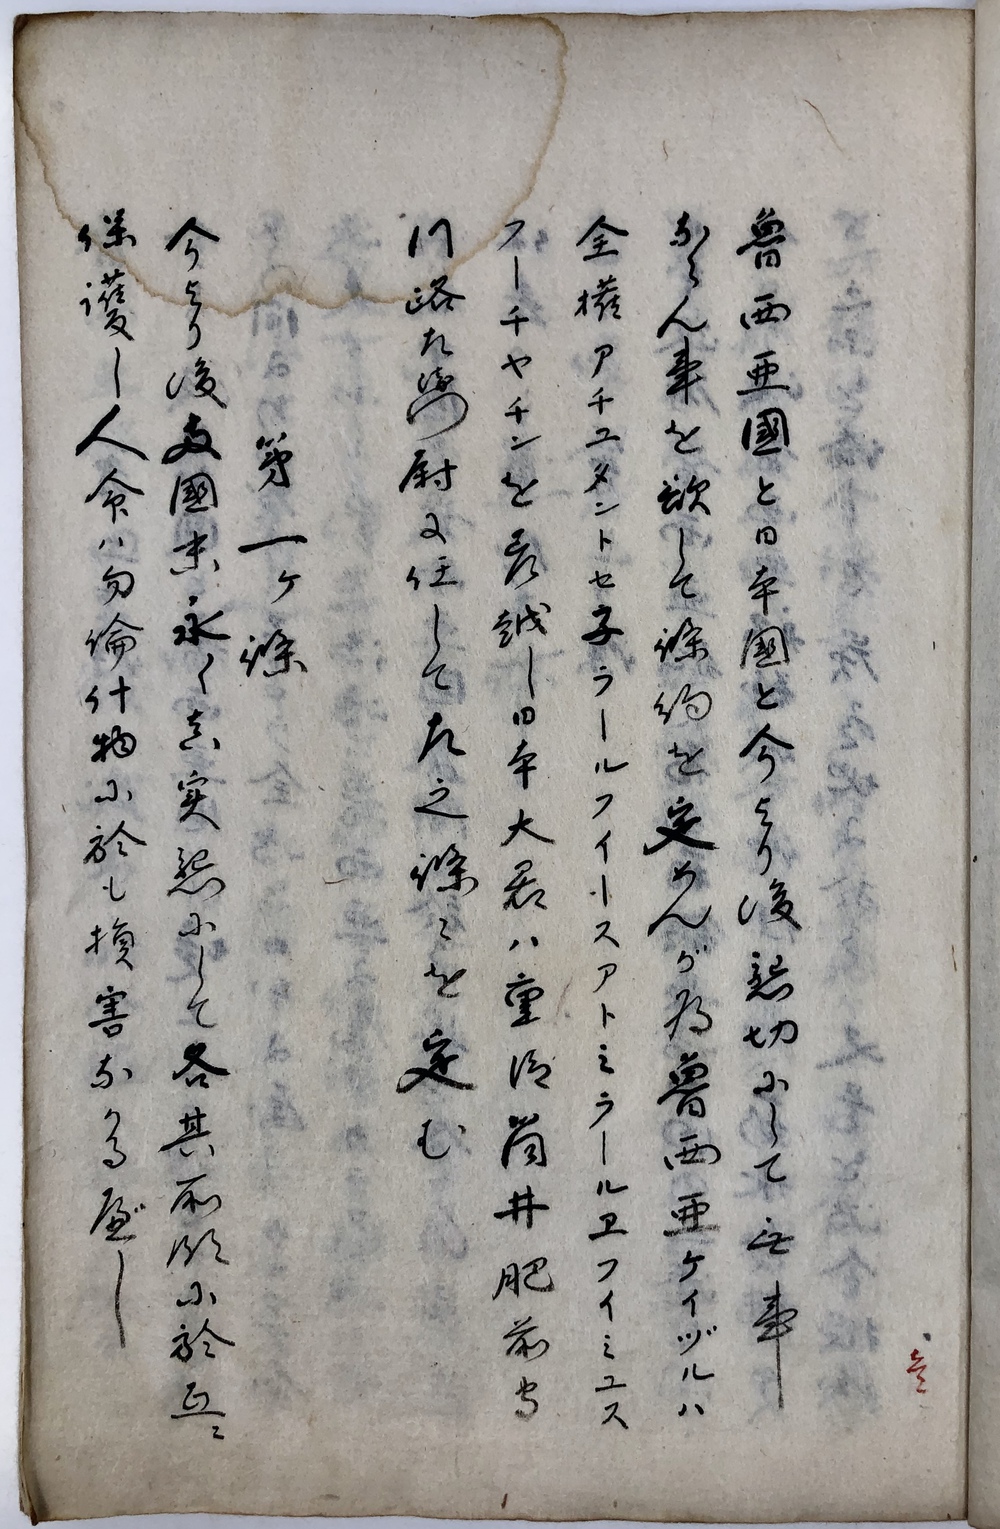 魯西亜國と日本國と今より後懇切にして無事
ならん事を欲して條約を定めんが為魯西亜ケイヅルハ
全権アチユタントセ子ラールフイースアトミラールヱフイミユス
フーチヤチンを差越し日本大君ハ重臣筒井肥前守
川路左衛門尉に任して左之條々を定む
第一ケ條
今より後両國末永く真実懇にして各其所領に於互ニ
保護し人命ハ勿論什物に於も損害なかるべし